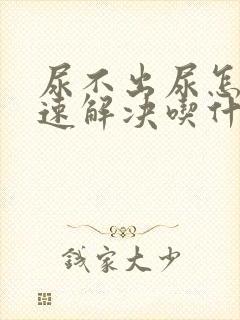 尿不出尿怎
速解决喫什
钱家大少